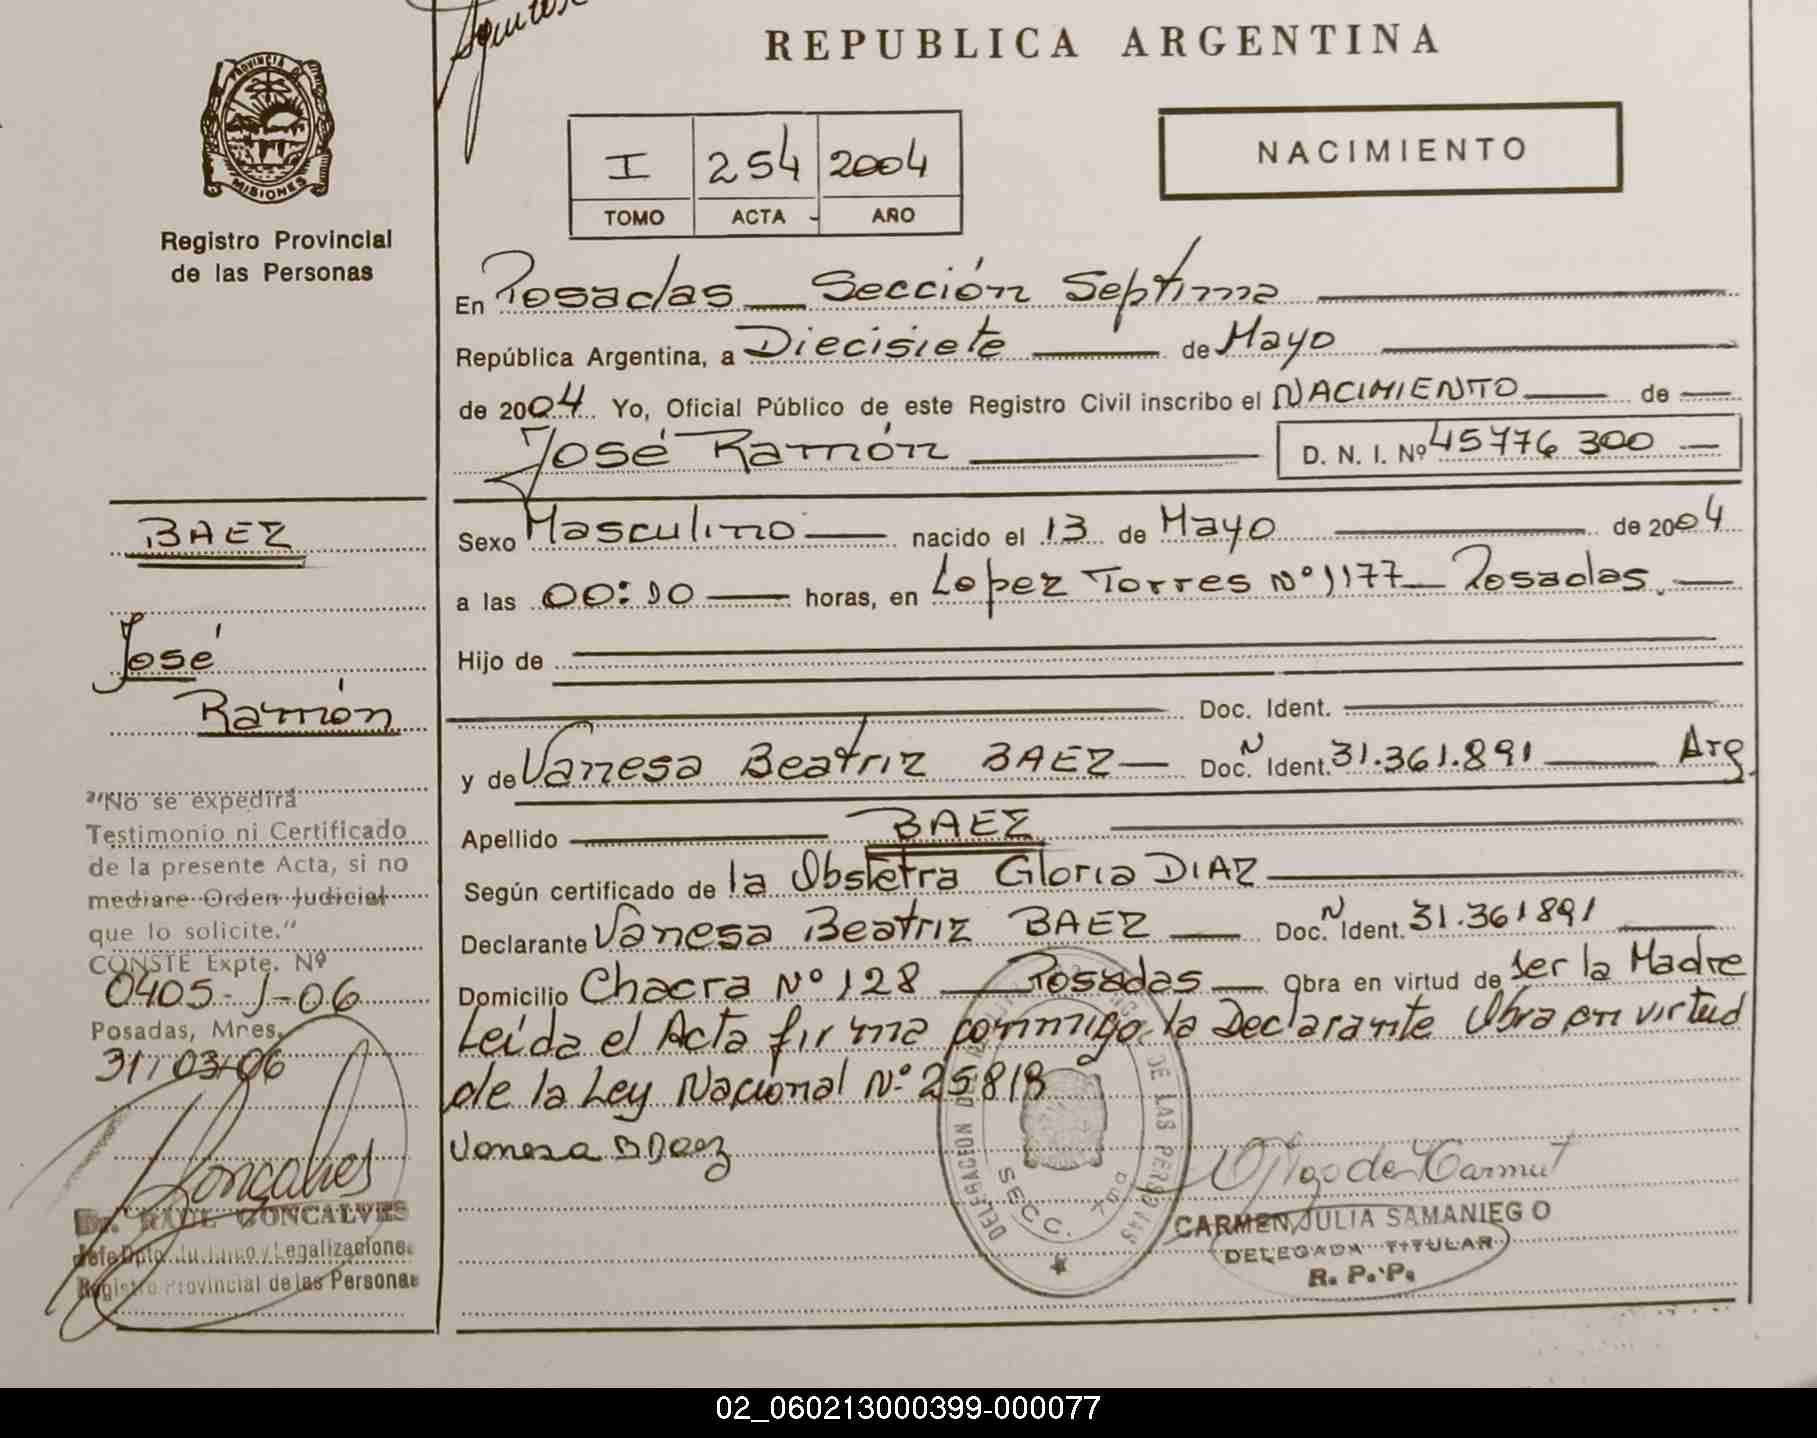 REPUBLICA ARGENTINA
PROVINCIA DE
MISIONES
Registro Provincial
de las Personas
I 254 2004
TOMO ACTA AÑO
NACIMIENTO
En Posadas Sección Septima
República Argentina, a Diecisiete de Mayo
de 2004 Yo, Oficial Público de este Registro Civil inscribo el NACIMIENTO de
José Ramón D. N. I. Nº 45776 300
Sexo Masculino nacido el 13 de Mayo de 2004
a las 00:10 horas, en Lopez Torres Nº 1177 Posadas.
Hijo de
Doc. Ident.
y de Vanesa Beatriz BAEZ Doc. N Ident. 31.361.891 Arg.
Apellido BAEZ
Según certificado de la Obstetra Gloria DIAZ
Declarante Vanesa Beatriz BAEZ Doc. N Ident. 31.361891
Domicilio Chacra Nº 128 Posadas Obra en virtud de ser la Madre
Leída el Acta firma conmigo la Declarante Obra en virtud
de la Ley Nacional Nº 25818
Vanesa B Baez
DELEGACION DE LAS PERSONAS
SECC. 7ma
CARMEN JULIA SAMANIEGO
DELEGADA TITULAR
R. P. P.
BAEZ
José
Ramón
"No se expedirá
Testimonio ni Certificado
de la presente Acta, si no
mediare Orden Judicial
que lo solicite."
CONSTE Expte. Nº
0405-J-06
Posadas, Mnes.
31/03/06
Goncalves
Dr. RAUL GONCALVES
Jefe Dpto. Jurídico y Legalizaciones
Registro Provincial de las Personas
02_060213000399-000077